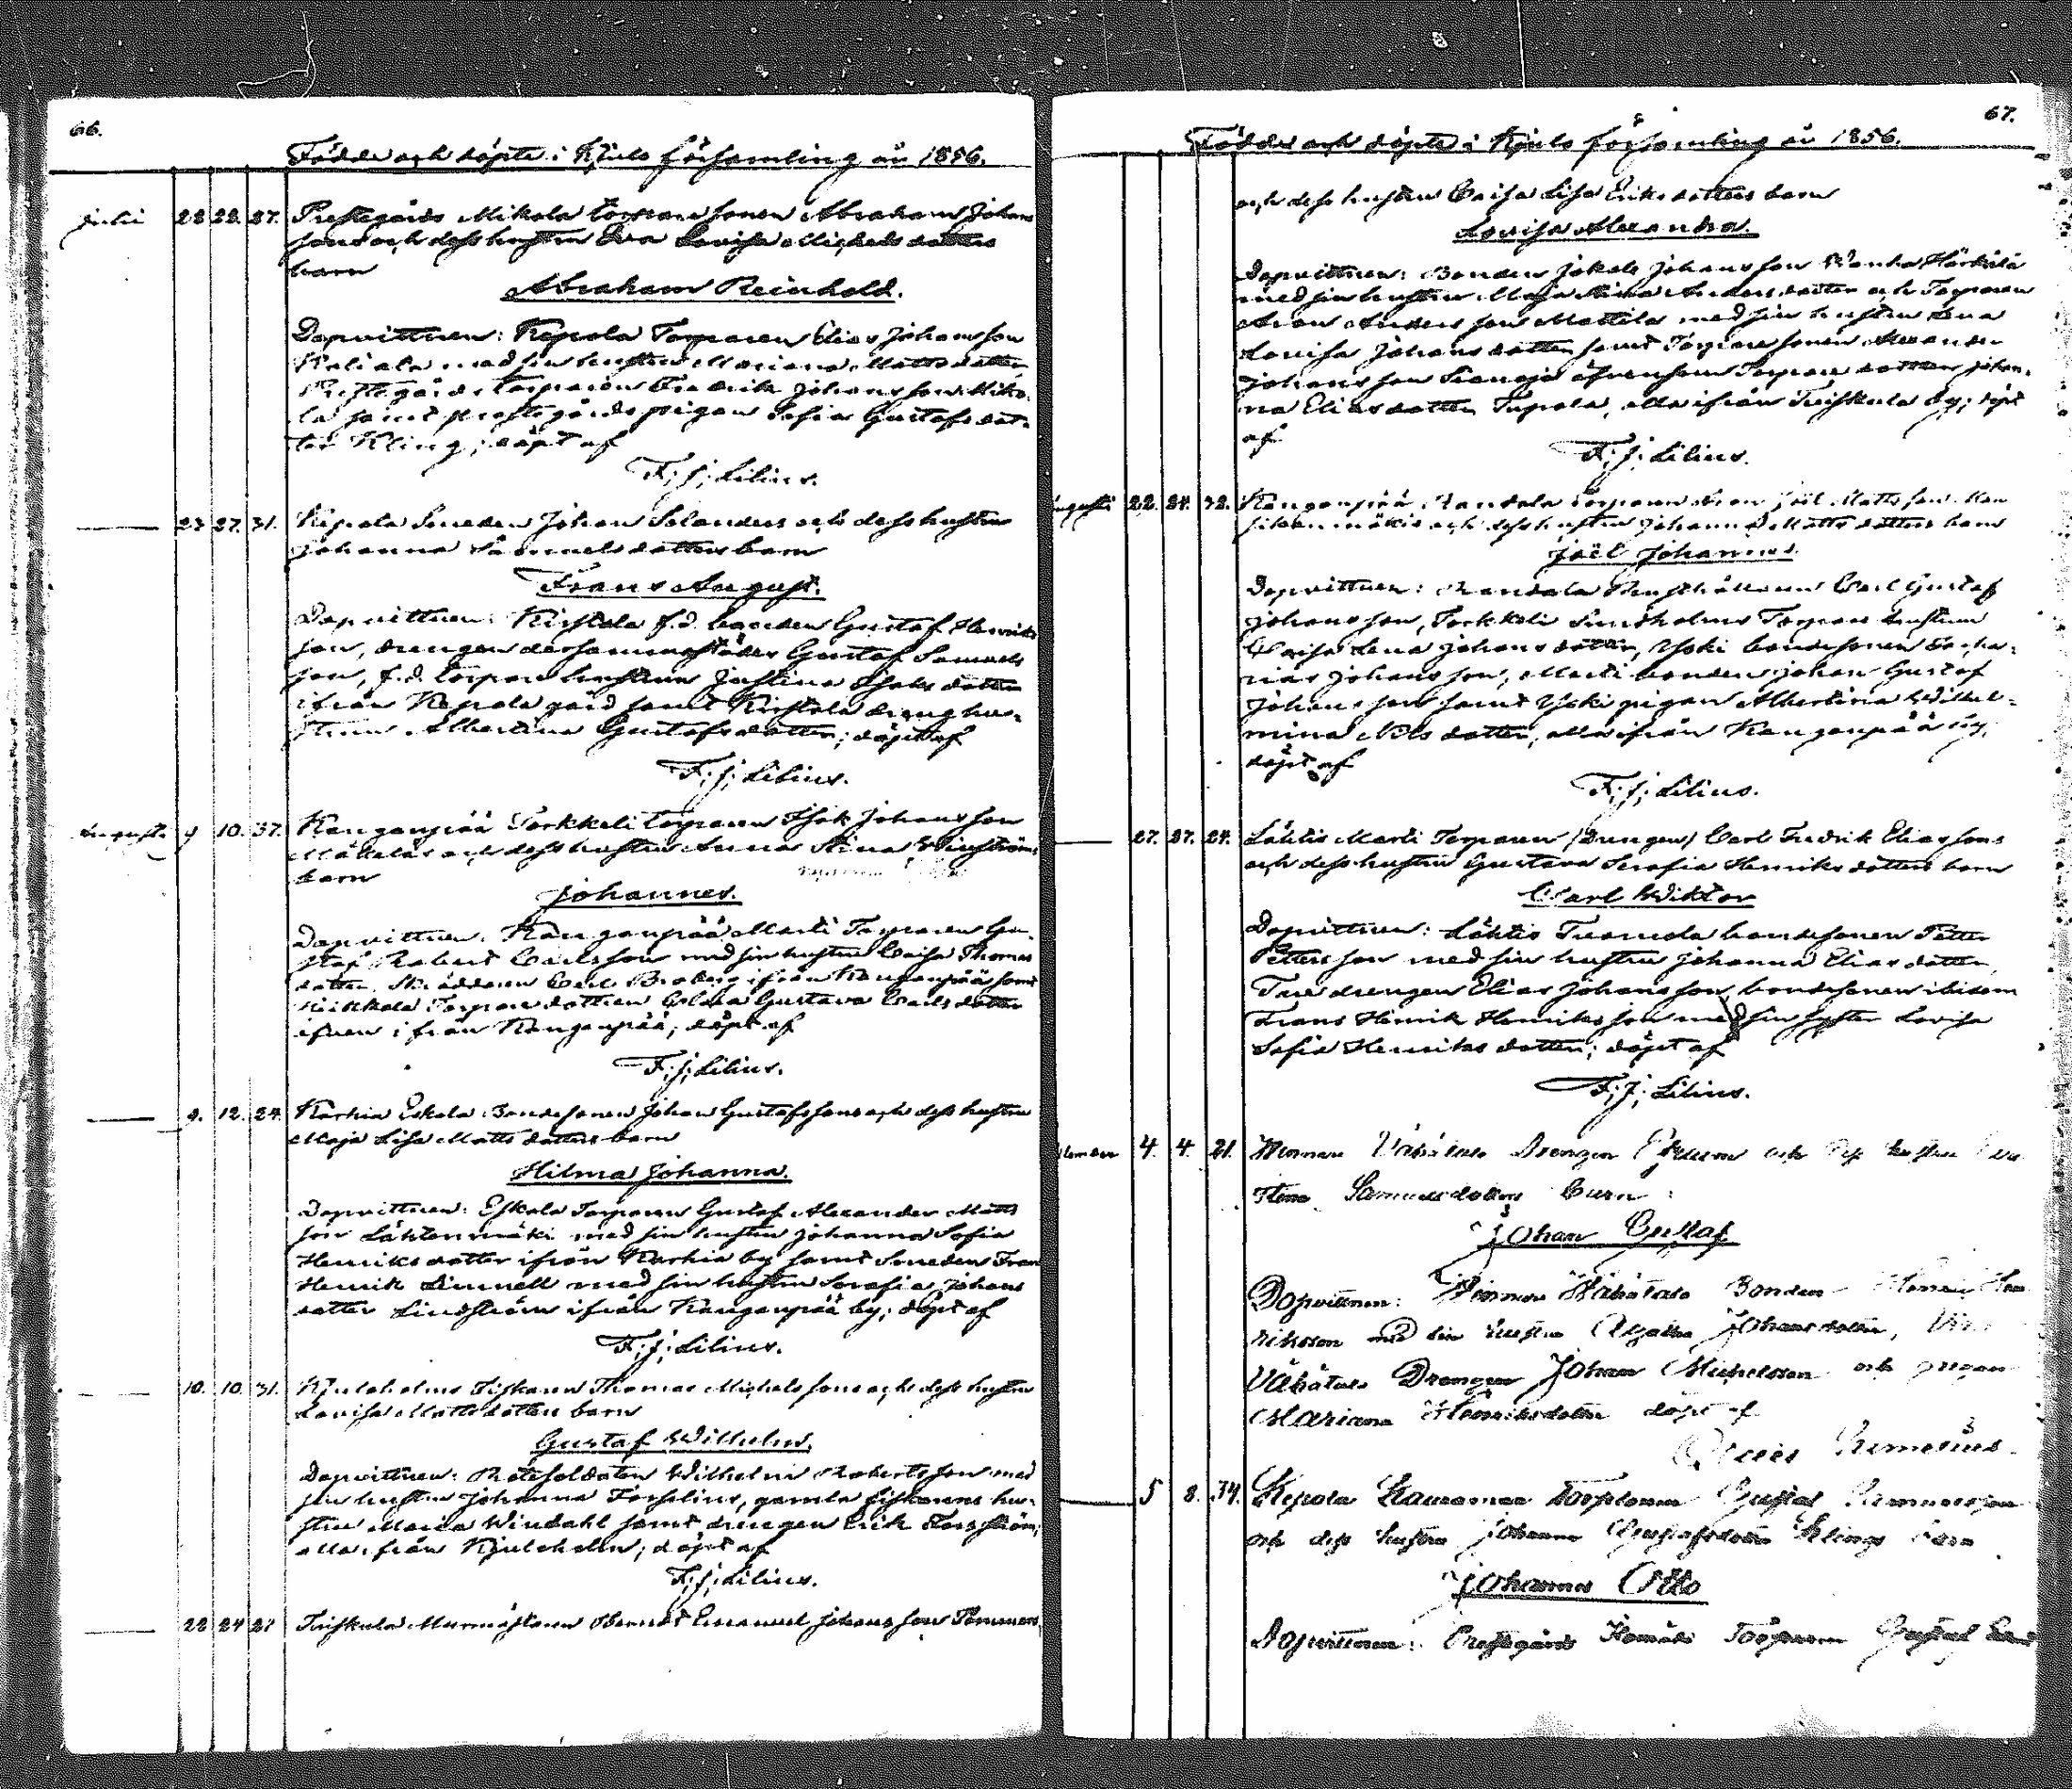 66.
Födde och döpte i Kjulo församling år 1856.
Julii 22 22. 27. Prestegårds Mikola torpare sonen Abraham Johans
sons och dess hustru Eva Lovisa Michels dotters
barn
Abraham Reinhold.
Dopvittnen: Kepola Torparen Elias Johansson
med sin hustru Mariana Matts dotter
Prestegårds torparen Fredrik Johansson Miko-
la samt prestegårds pigan Sofia Gustafs dot-
ter Kling; döpt af
F. J. Lilius.
—— 23 27. 31. Kepola Smeden Johan Selanders och dess hustru
Johanna Samuels dotters barn
Frans August.
Dopvittnen: Kirstala f.d. bonden Gustaf Henriks
son, drengen dersammastädes Gustaf Samuels
son, f.d. torpare hustrun Justina Isaks dotter
ifrån Kepola gård samt Kirstala dreng hu-
strun Albertina Gustafs dotter; döpt af
F. J. Lilius.
Augusti 9 10. 37. Kanganpää Torkkeli torparen Isak Johansson
Mäkeläs och dess hustru Anna Stina
barn
Johannes.
Dopvittnen: Kanganpää Marti Torparen Gu-
staf Robert Carlsson med sin hustru Caisa Thomas
dotter, Skräddaren Carl Broberg ifrån Kanganpää samt
Torpare dottren Gustava Carls dotter
ifrån Kanganpää; döpt af
F. J. Lilius.
—— 9. 12. 24. Karhia Eskola Bondesonen Johan Gustafssons och dess hustru
Maja Lisa Matts dotters barn
Hilma Johanna.
Dopvittnen: Eskola Torparen Gustaf Alexander Matts
son Lähtenmäki med sin hustru Johanna Sofia
Henriks dotter ifrån Karhia by samt Smeden Frans
Henrik Linnell med sin hustru Serafia Johans
dotter Lindström ifrån Kanganpää by; döpt af
F. J. Lilius.
—— 10. 10. 31. Kjuloholms Fiskaren Thomas Michelssons och dess hustru
Lovisa Matts dotters barn
Gustaf Wilhelm.
Dopvittnen: Rotesoldaten Wilhelm Robertsson med
sin hustru Johanna Forselius, gamla fiskarens hu-
stru Maria Windahl samt drengen Erik
alla ifrån Kjuloholm; döpt af
F. J. Lilius.
—— 22 24 27 Tuiskula Murmästaren Berndt Emanuel Johansson
67.
Födde och döpte i Kjulo församling år 1856.
och dess hustru Caisa Lisa Eriks dotters barn
Lovisa Alexandra.
Dopvittnen: Bonden Jakob Johansson Wanha Härkälä
med sin hustru Maja Stina Anders dotter och Torparen
Anders son Mattila med sin hustru Lena
Lovisa Johans dotter samt Torpare sonen Alexander
Johansson äfvensom Torpare dottren Johan-
na Elias dotter Tupola, alla ifrån Tuiskula by; döpt
af
F. J. Lilius.
Augusti 22. 24. 32. Kanganpää Randala Torparen Joël Mattsson
och dess hustru Johanna Matts dotters barn
Joël Johannes.
Dopvittnen: Randala Rusthållaren Carl Gustaf
Johansson, Torkkeli Torpare hustrun
Caisa Lena Johans dotter, Yski bondesonen Zacha-
rias Johansson, Marti bonden Johan Gustaf
Johansson samt Yski pigan Albertina Wilhel-
mina Nils dotter, alla ifrån Kanganpää by;
döpt af
F. J. Lilius.
—— 27. 27. 24. Lähtis Marti Torparen (Drengen) Carl Fredrik Eliassons
och dess hustru Gustava Serafia Henriks dotters barn
Carl Wiktor
Dopvittnen: Lähtis Tuomola bondesonen Petter
Pettersson med sin hustru Johanna Elias dotter,
drengen Elias Johansson, bondesonen ibidem
Frans Henrik Henriksson med sin syster Lovisa
Sofia Henriks dotter; döpt af
F. J. Lilius.
4. 4. 21. Vähätalo Drengen och dess hustru
Stina Samuelsdotters barn
Johan Gustaf
Dopvittnen: Vähätalo Bonden
riksson med sin hustru Agatha Johansdotter,
Vähätalo Drengen Johan Michelsson och pigan
Mariana Henriksdotter döpt af
—— 5 8. 34. Kepola Torparen Gustaf
och dess hustru Johanna Gustafsdotter Klings barn
Johannes Otto
Dopvittnen: Prestegårds Torparen Gustaf